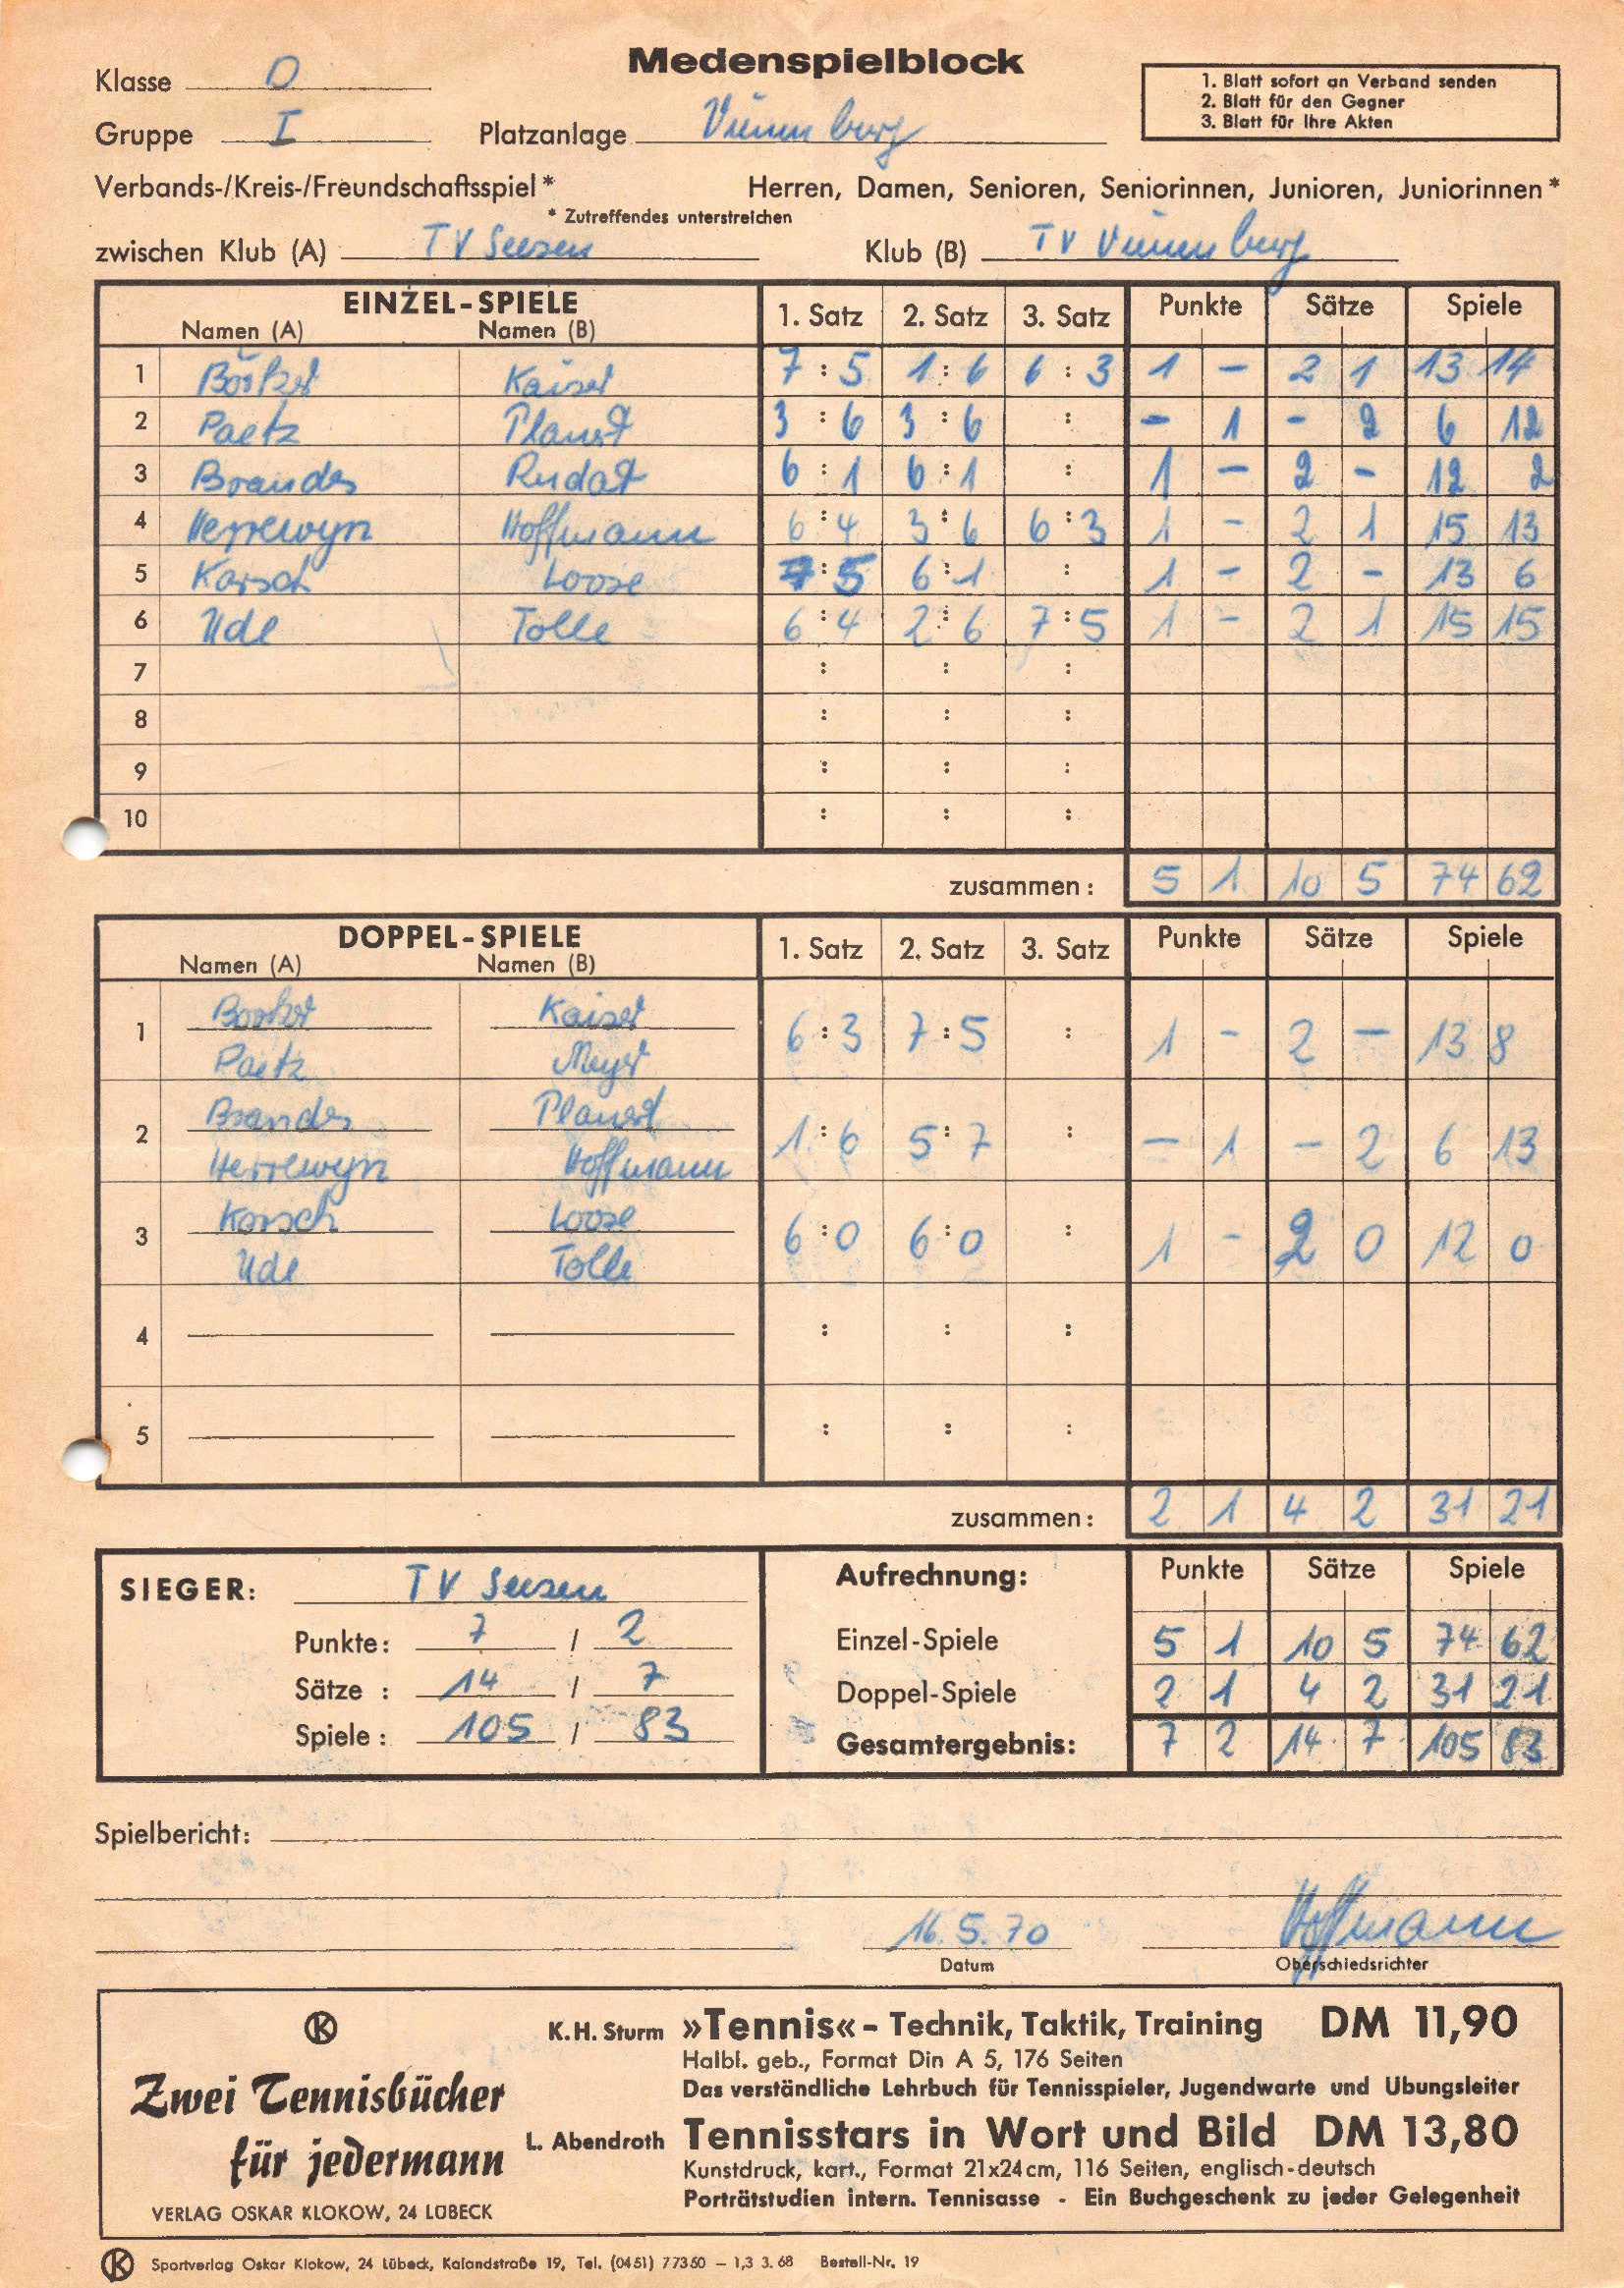 Medenspielblock
Klasse D
Gruppe I Platzanlage Vienenburg
1. Blatt sofort an Verband senden
2. Blatt für den Gegner
3. Blatt für Ihre Akten
Verbands-/Kreis-/Freundschaftsspiel* Herren, Damen, Senioren, Seniorinnen, Junioren, Juniorinnen*
* Zutreffendes unterstreichen
zwischen Klub (A) TV Seesen Klub (B) TV Vienenburg
EINZEL-SPIELE 1. Satz 2. Satz 3. Satz Punkte Sätze Spiele
Namen (A) Namen (B)
1 Börker Kaiser 7:5 1:6 6:3 1 - 2 1 13 14
2 Paetz Planert 3:6 3:6 : - 1 - 2 6 12
3 Brandes Rudat 6:1 6:1 : 1 - 2 - 12 2
4 Herrewyn Hoffmann 6:4 3:6 6:3 1 - 2 1 15 13
5 Karsch Loose 7:5 6:1 : 1 - 2 - 13 6
6 Ude Tolle 6:4 2:6 7:5 1 - 2 1 15 15
7 : : :
8 : : :
9 : : :
10 : : :
zusammen: 5 1 10 5 74 62
DOPPEL-SPIELE 1. Satz 2. Satz 3. Satz Punkte Sätze Spiele
Namen (A) Namen (B)
Börker Kaiser
1 6:3 7:5 : 1 - 2 - 13 8
Paetz Meyer
Brandes Planert
2 1:6 5:7 : - 1 - 2 6 13
Herrewyn Hoffmann
Karsch Loose
3 6:0 6:0 : 1 - 2 0 12 0
Ude Tolle
4 : : :
5 : : :
zusammen: 2 1 4 2 31 21
SIEGER: TV Seesen Aufrechnung: Punkte Sätze Spiele
Punkte: 7 / 2 Einzel-Spiele 5 1 10 5 74 62
Sätze : 14 / 7 Doppel-Spiele 2 1 4 2 31 21
Spiele : 105 / 83 Gesamtergebnis: 7 2 14 7 105 83
Spielbericht:
16.5.70 Hoffmann
Datum Oberschiedsrichter
K
Zwei Tennisbücher
für jedermann
VERLAG OSKAR KLOKOW, 24 LÜBECK
K.H. Sturm »Tennis« - Technik, Taktik, Training DM 11,90
Halbl. geb., Format Din A 5, 176 Seiten
Das verständliche Lehrbuch für Tennisspieler, Jugendwarte und Übungsleiter
L. Abendroth Tennisstars in Wort und Bild DM 13,80
Kunstdruck, kart., Format 21x24cm, 116 Seiten, englisch-deutsch
Porträtstudien intern. Tennisasse - Ein Buchgeschenk zu jeder Gelegenheit
K Sportverlag Oskar Klokow, 24 Lübeck, Kalandstraße 19, Tel. (0451) 77350 – 1,3 3. 68 Bestell-Nr. 19